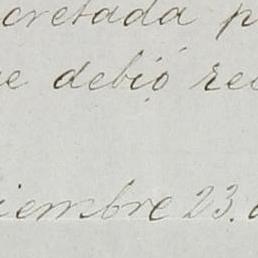 cretada p
e debió rec
iembre 23. d